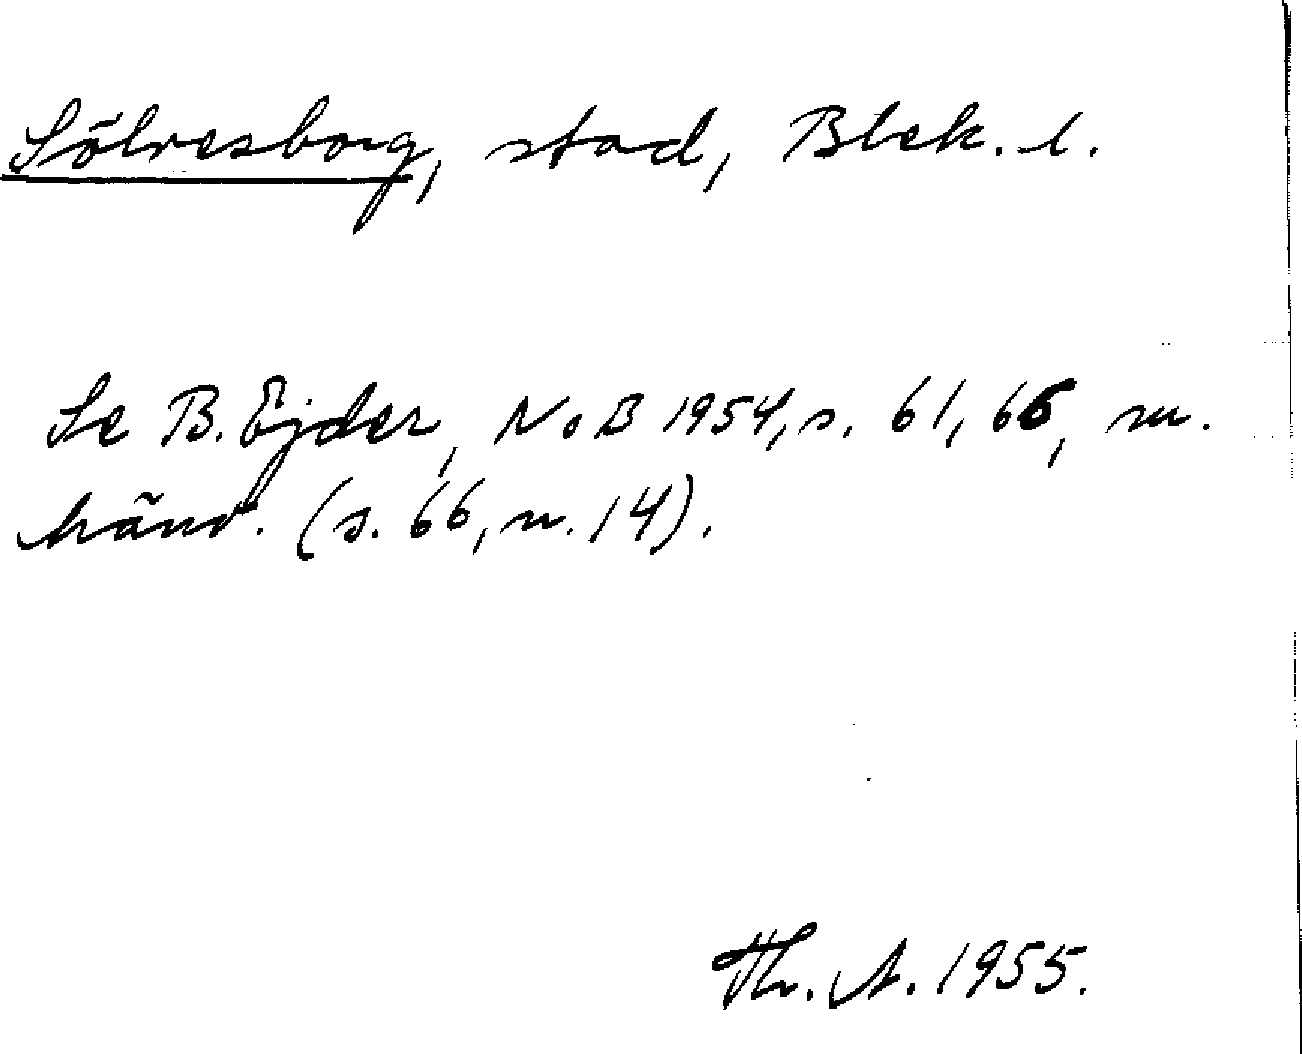 Sölvesborg, stad, Blek. l.
Se B. Ejder, NoB 1954, s. 61, 66, m.
hänv. (s. 66, n. 14).
Th. A. 1955.